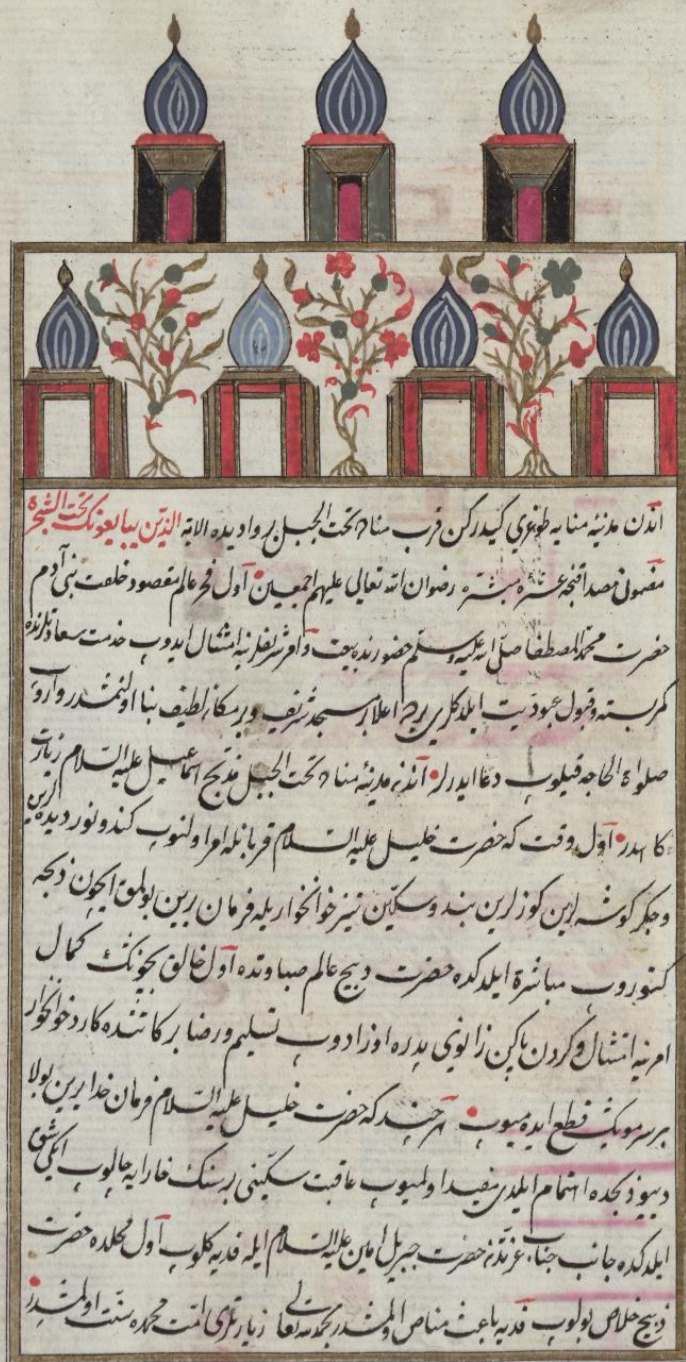 اندن مدینۀ منایه طوغری کیدرکن قرب مناده تحت الجبل بر وادیده الایة الذین یبایعونک تحت الشجرة
مضمونی مصداقنجه عشرۀ مبشره رضوان الله تعالی علیهم اجمعین اول فخر عالم مقصود خلقت بنی آدم
حضرت محمد المصطفا صلی الله علیه وسلم حضورنده بیعت وامر شریفلرینه امتثال ایدوب خدمت سعادتلرنده
کمر بسته وقبول عبودیت ایلدکلری یرده اعلا بر مسجد شریف وبر مکان لطیف بنا اولنمشدر واروب
صلواة الحاجه قیلوب دعا ایدرلر اندنه مدینۀ مناده تحت الجبل مذبح اسماعیل علیه السلام زیارت
کاهیدر اول وقت که حضرت خلیل علیه السلام قربانله امر اولنوب کندو نور دیده لرین
وجکر کوشه لرین کوزلرین بند وسکین تیز خوانخوار یله فرمان یرین بولمق ایچون ذبحه
کتوروب مباشرة ایلدکده حضرت ذبیح عالم صباوتده اول خالق بیچونک کمال
امرینه امتثال وکردن پاکین زانوی پدره اوزادوب تسلیم ورضا بر کاتنده کارد خوانخوار
بر سر مویک قطع ایده میوب هر چند که حضرت خلیل علیه السلام فرمان خدا یرین بولا
دیو ذبحده اهتمام ایلدی مفید اولمیوب عاقبت سکینی بر سنک خارایه چالوب ایکی شق
ایلدکده جانب جناب عزتدن حضرت جبریل امین علیه السلام ایله فدیه کلوب اول محلده حضرت
ذبیح خلاص بولوب فدیه باعث مناص اولمشدر بحمد الله تعالی زیارتلری امت محمده سنت اولمشدر